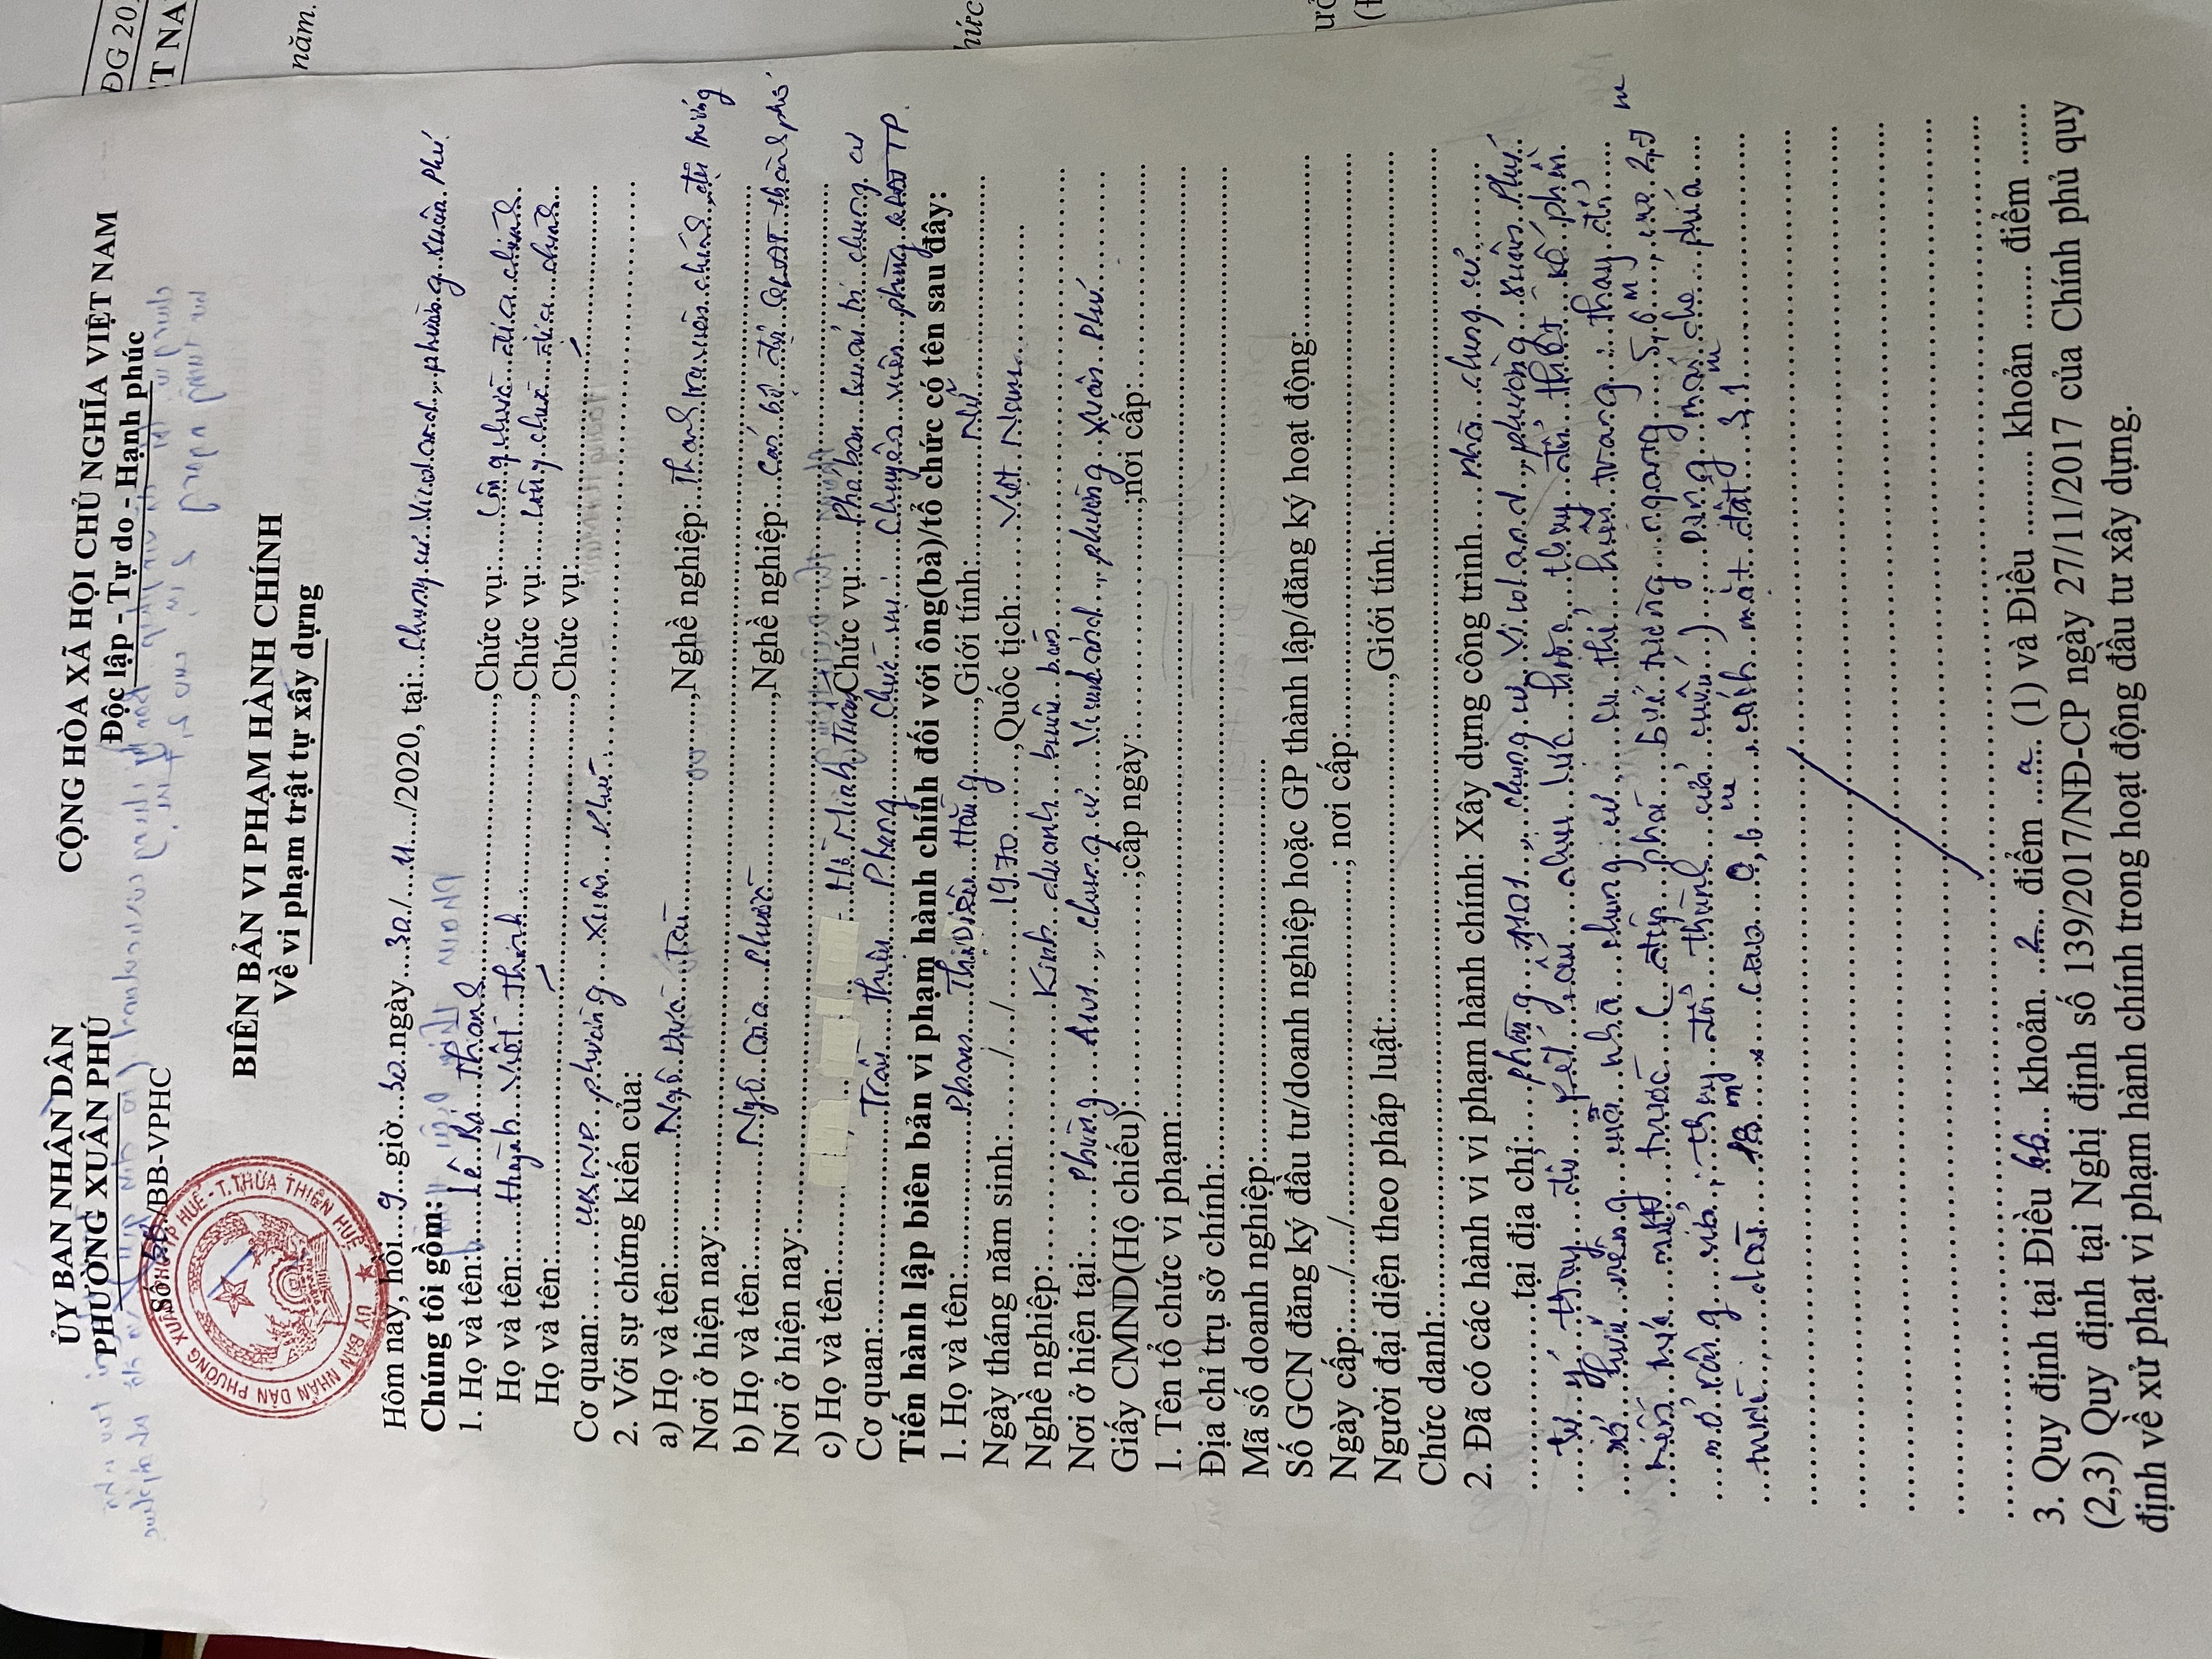 ỦY BAN NHÂN DÂN
PHƯỜNG XUÂN PHÚ
Số: 66./BB-VPHC
CỘNG HÒA XÃ HỘI CHỦ NGHĨA VIỆT NAM
Độc lập - Tự do - Hạnh phúc
BIÊN BẢN VI PHẠM HÀNH CHÍNH
Về vi phạm trật tự xây dựng
Hôm nay, hồi...9...giờ...30..ngày....30./...11..../2020, tại:..Chung cư Vicoland, phường Xuân Phú
Chúng tôi gồm:
1. Họ và tên:.....Lê Bá Thanh.....,Chức vụ:....Công chức địa chính
Họ và tên:.....Huỳnh Viết Thịnh.....,Chức vụ:....Công chức địa chính
Họ và tên:..........,Chức vụ:..........
Cơ quan:.......UBND phường Xuân Phú
2. Với sự chứng kiến của:
a) Họ và tên:..........Ngô Đức Tài..........,Nghề nghiệp:..Thanh tra viên chính, đội trưởng
Nơi ở hiện nay:..........
b) Họ và tên:..........Ngô Phước..........,Nghề nghiệp:..Cán bộ đội QLĐT thành phố
Nơi ở hiện nay:..........
c) Họ và tên:..........Hồ Minh Thiện,Chức vụ:....Phó ban quản trị chung cư
Cơ quan:..........Trần Thiên Phong.......Chức vụ:....Chuyên viên phòng QLĐT TP.
Tiến hành lập biên bản vi phạm hành chính đối với ông(bà)/tổ chức có tên sau đây:
1. Họ và tên:..........Phan Thị Diệu Hằng.......,Giới tính:..........Nữ..........
Ngày tháng năm sinh:......./..../.......1970.......,Quốc tịch:......Việt Nam..........
Nghề nghiệp:..........Kinh doanh buôn bán..........
Nơi ở hiện tại:......Phòng A101, chung cư Vicoland, phường Xuân Phú..........
Giấy CMND(Hộ chiếu):..........;cấp ngày:..........;nơi cấp:..........
1. Tên tổ chức vi phạm:..........
Địa chỉ trụ sở chính:..........
Mã số doanh nghiệp:..........
Số GCN đăng ký đầu tư/doanh nghiệp hoặc GP thành lập/đăng ký hoạt động:..........
Ngày cấp:...../...../..........; nơi cấp:..........
Người đại diện theo pháp luật:..........,Giới tính:..........
Chức danh:..........
2. Đã có các hành vi vi phạm hành chính: Xây dựng công trình.....nhà chung cư.......
..........tại địa chỉ:....phòng A101, chung cư Vicoland, phường Xuân Phú
Tự ý thay đổi kết cấu chịu lực hoặc thay đổi thiết kế phần
sở hữu riêng của nhà chung cư, cụ thể hiện trạng: thay đổi
kiến trúc mặt trước (, phá bức tường ngang 5,6 m, cao 2,7 m
mở rộng cửa, thay đổi thành cửa cuốn). Dựng mái che phía
trước, dài 18 m x cao 0,6 m, cách mặt đất 3,1 m
3. Quy định tại Điều 66... khoản...2... điểm ....a.... (1) và Điều ........ khoản ....... điểm .......
(2,3) Quy định tại Nghị định số 139/2017/NĐ-CP ngày 27/11/2017 của Chính phủ quy
định về xử phạt vi phạm hành chính trong hoạt động đầu tư xây dựng.
ĐG 20
T NA
năm.